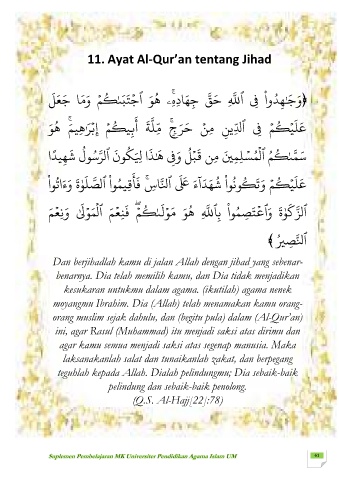 11. Ayat Al-Qur'an tentang Jihad
﴿وَجَٰهِدُواْ فِي ٱللَّهِ حَقَّ جِهَادِهِۦۚ هُوَ ٱجۡتَبَىٰكُمۡ وَمَا جَعَلَ
عَلَيۡكُمۡ فِي ٱلدِّينِ مِنۡ حَرَجٖۚ مِّلَّةَ أَبِيكُمۡ إِبۡرَٰهِيمَۚ هُوَ
سَمَّىٰكُمُ ٱلۡمُسۡلِمِينَ مِن قَبۡلُ وَفِي هَٰذَا لِيَكُونَ ٱلرَّسُولُ شَهِيدًا
عَلَيۡكُمۡ وَتَكُونُواْ شُهَدَآءَ عَلَى ٱلنَّاسِۚ فَأَقِيمُواْ ٱلصَّلَوٰةَ وَءَاتُواْ
ٱلزَّكَوٰةَ وَٱعۡتَصِمُواْ بِٱللَّهِ هُوَ مَوۡلَىٰكُمۡۖ فَنِعۡمَ ٱلۡمَوۡلَىٰ وَنِعۡمَ
ٱلنَّصِيرُ﴾
Dan berjihadlah kamu di jalan Allah dengan jihad yang sebenar-
benarnya. Dia telah memilih kamu, dan Dia tidak menjadikan
kesukaran untukmu dalam agama. (ikutilah) agama nenek
moyangmu Ibrahim. Dia (Allah) telah menamakan kamu orang-
orang muslim sejak dahulu, dan (begitu pula) dalam (Al-Qur'an)
ini, agar Rasul (Muhammad) itu menjadi saksi atas dirimu dan
agar kamu semua menjadi saksi atas segenap manusia. Maka
laksanakanlah salat dan tunaikanlah zakat, dan berpegang
teguhlah kepada Allah. Dialah pelindungmu; Dia sebaik-baik
pelindung dan sebaik-baik penolong.
(Q.S. Al-Hajj[22]:78)
Suplemen Pembelajaran MK Universiter Pendidikan Agama Islam UM